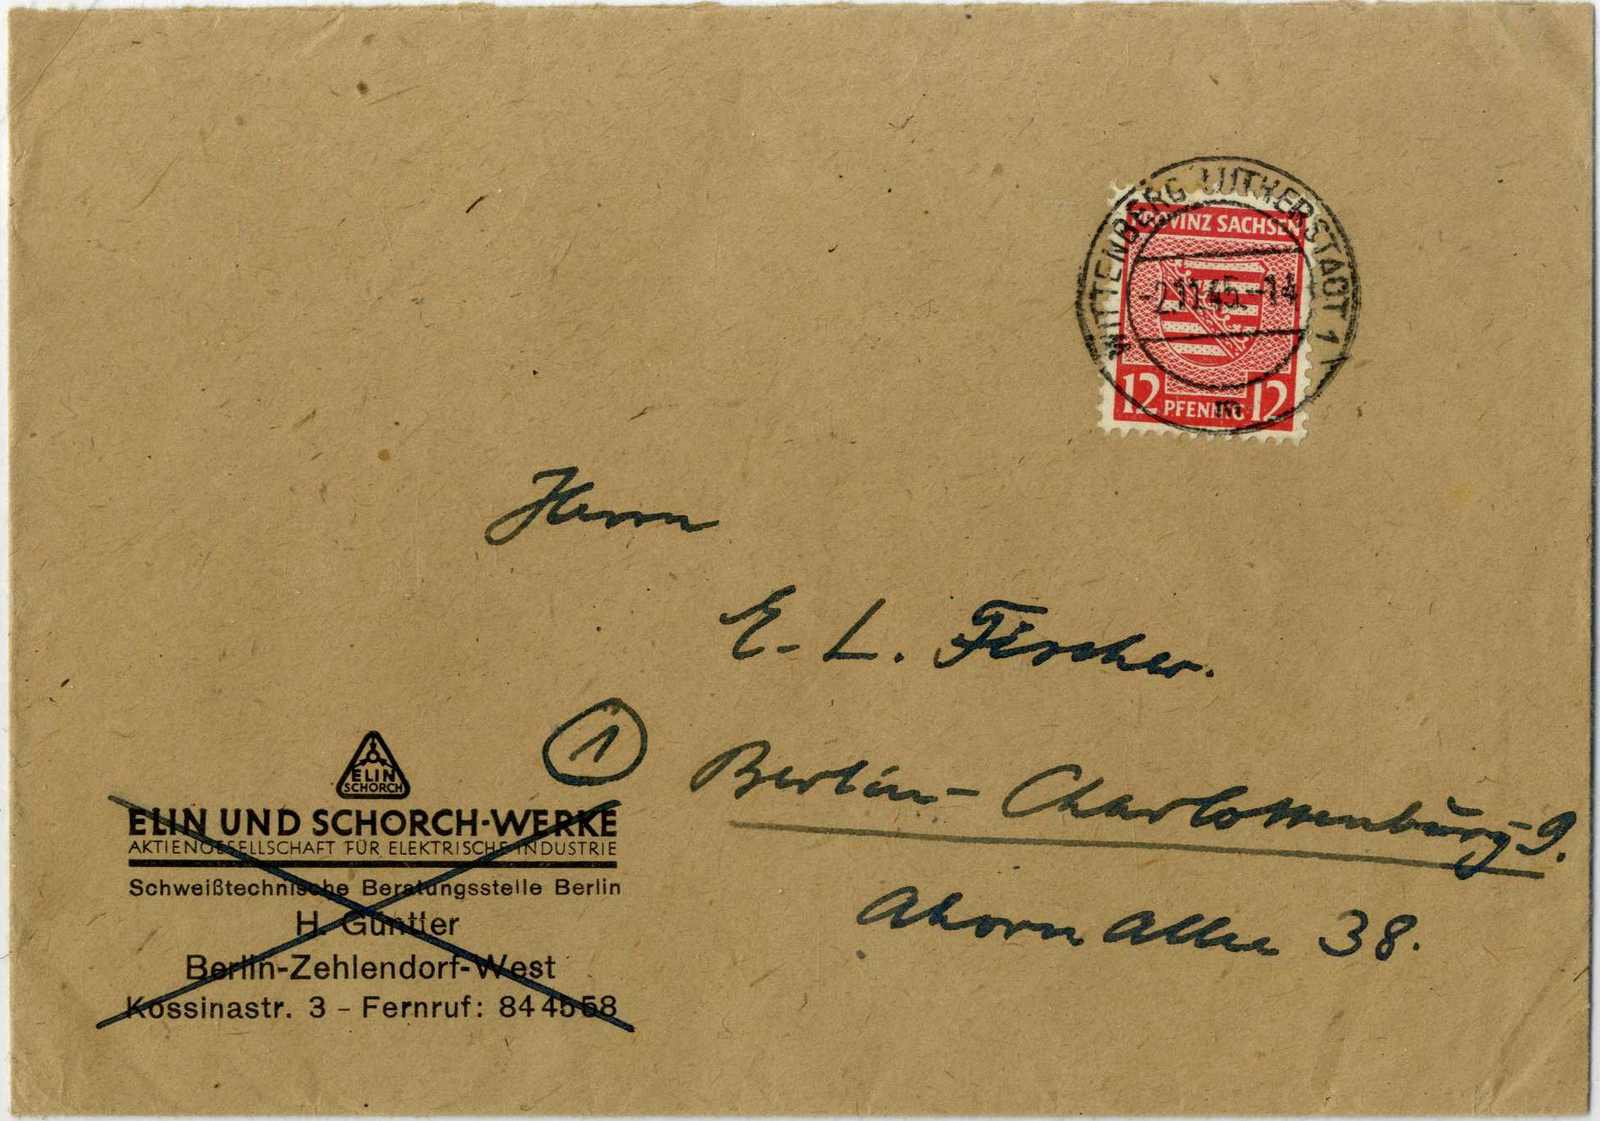 WITTENBERG LUTHERSTADT 1
PROVINZ SACHSEN
-2.11.45.-14
12 PFENNIG 12
m
Herrn
E.L. Fischer.
1
Berlin-Charlottenburg-9.
Ahorn Allee 38.
ELIN
SCHORCH
ELIN UND SCHORCH-WERKE
AKTIENGESELLSCHAFT FÜR ELEKTRISCHE INDUSTRIE
Schweißtechnische Beratungsstelle Berlin
H. Güntler
Berlin-Zehlendorf-West
Kossinastr. 3 – Fernruf: 84 45 58